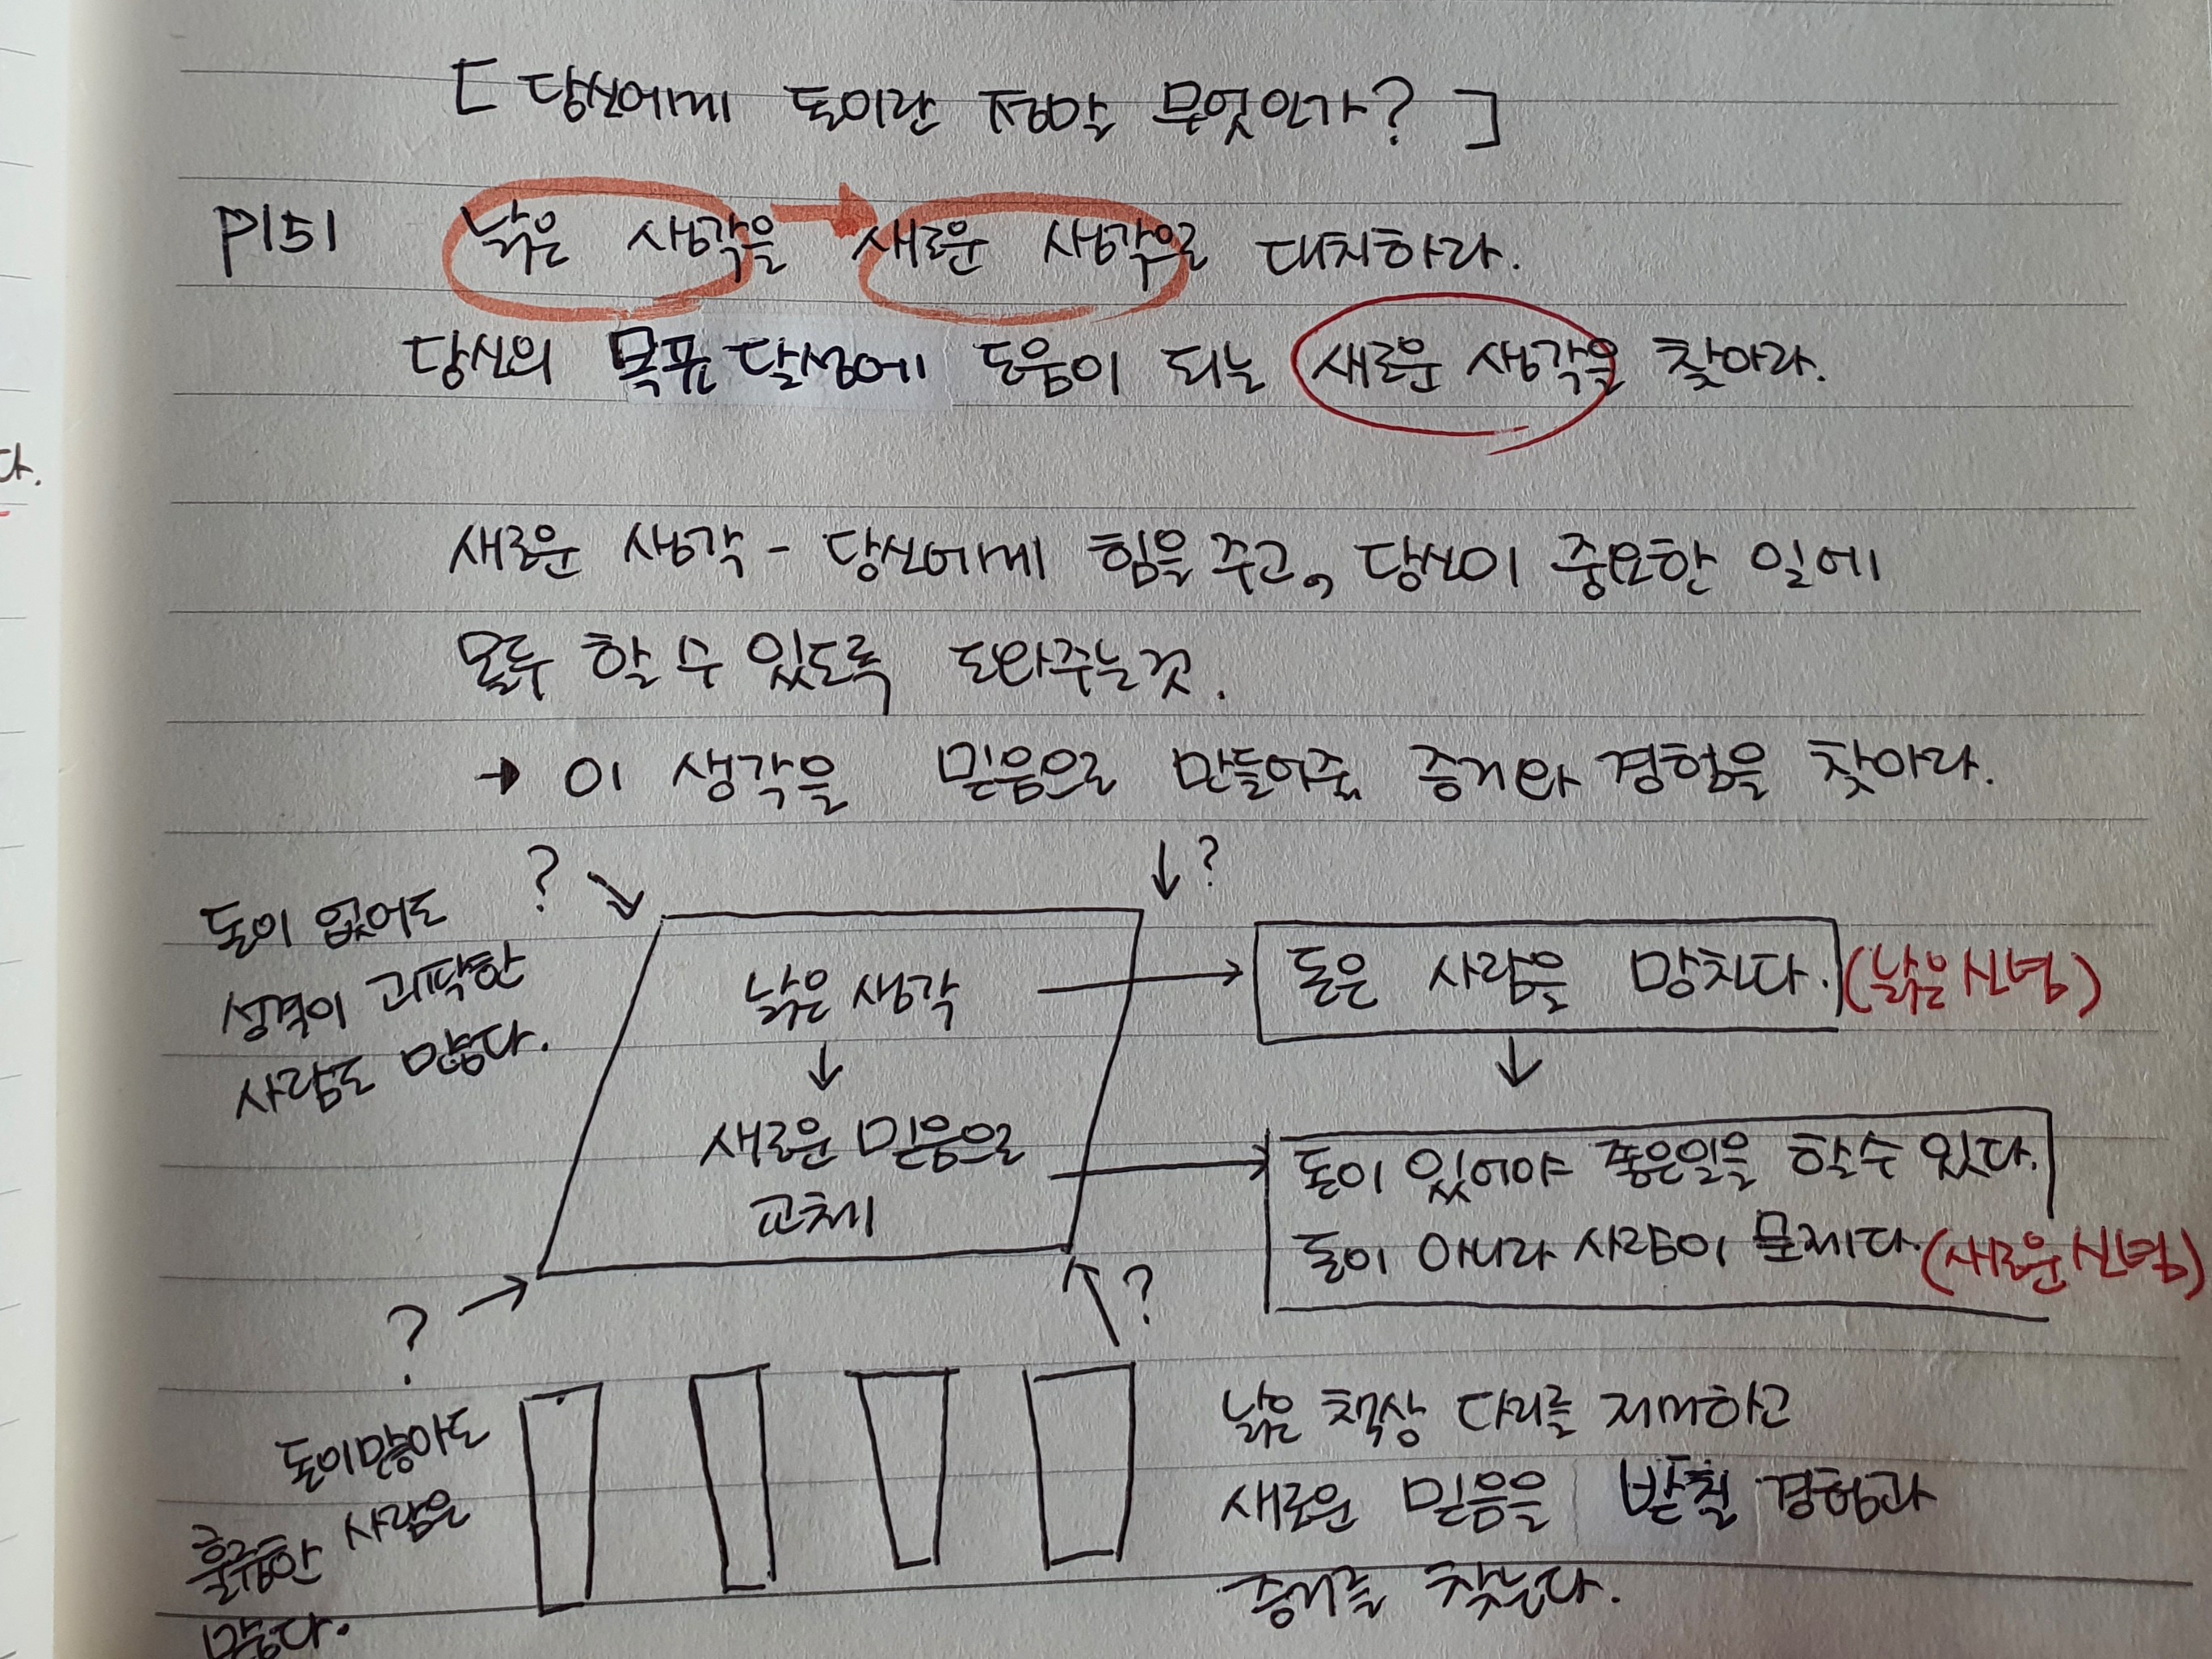 [ 당신에게 돈이란 정말 무엇인가? ]
P151 낡은 생각을 → 새로운 생각으로 대치하라.
당신의 목표달성에 도움이 되는 새로운 생각을 찾아라.
다.
새로운 생각 - 당신에게 힘을 주고, 당신이 중요한 일에
모두 할 수 있도록 도와주는것.
→ 이 생각을 믿음으로 만들어줄 증거와 경험을 찾아라.
? ↓?
돈이 없어도
성격이 괴팍한
사람도 많다.
낡은 생각
↓
새로운 믿음으로
교체
돈은 사람을 망치다. (낡은신념)
↓
돈이 있어야 좋은일을 할수 있다.
돈이 아니라 사람이 문제다. (새로운신념)
? ?
돈이많아도
훌륭한 사람은
많다.
낡은 책상 다리를 제거하고
새로운 믿음을 받칠 경험과
증거를 찾는다.